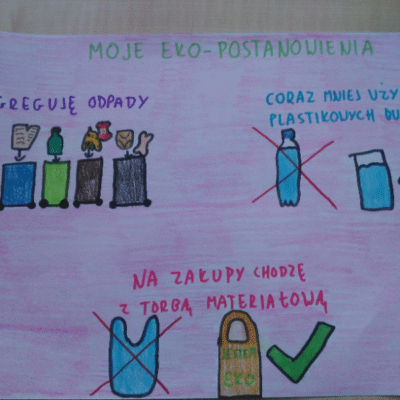 MOJE EKO-POSTANOWIENIA
GREGUJĘ ODPADY
CORAZ MNIEJ UŻY
PLASTIKOWYCH BU
NA ZAKUPY CHODZĘ
Z TORBĄ MATERIAŁOWĄ
JESTEM
EKO